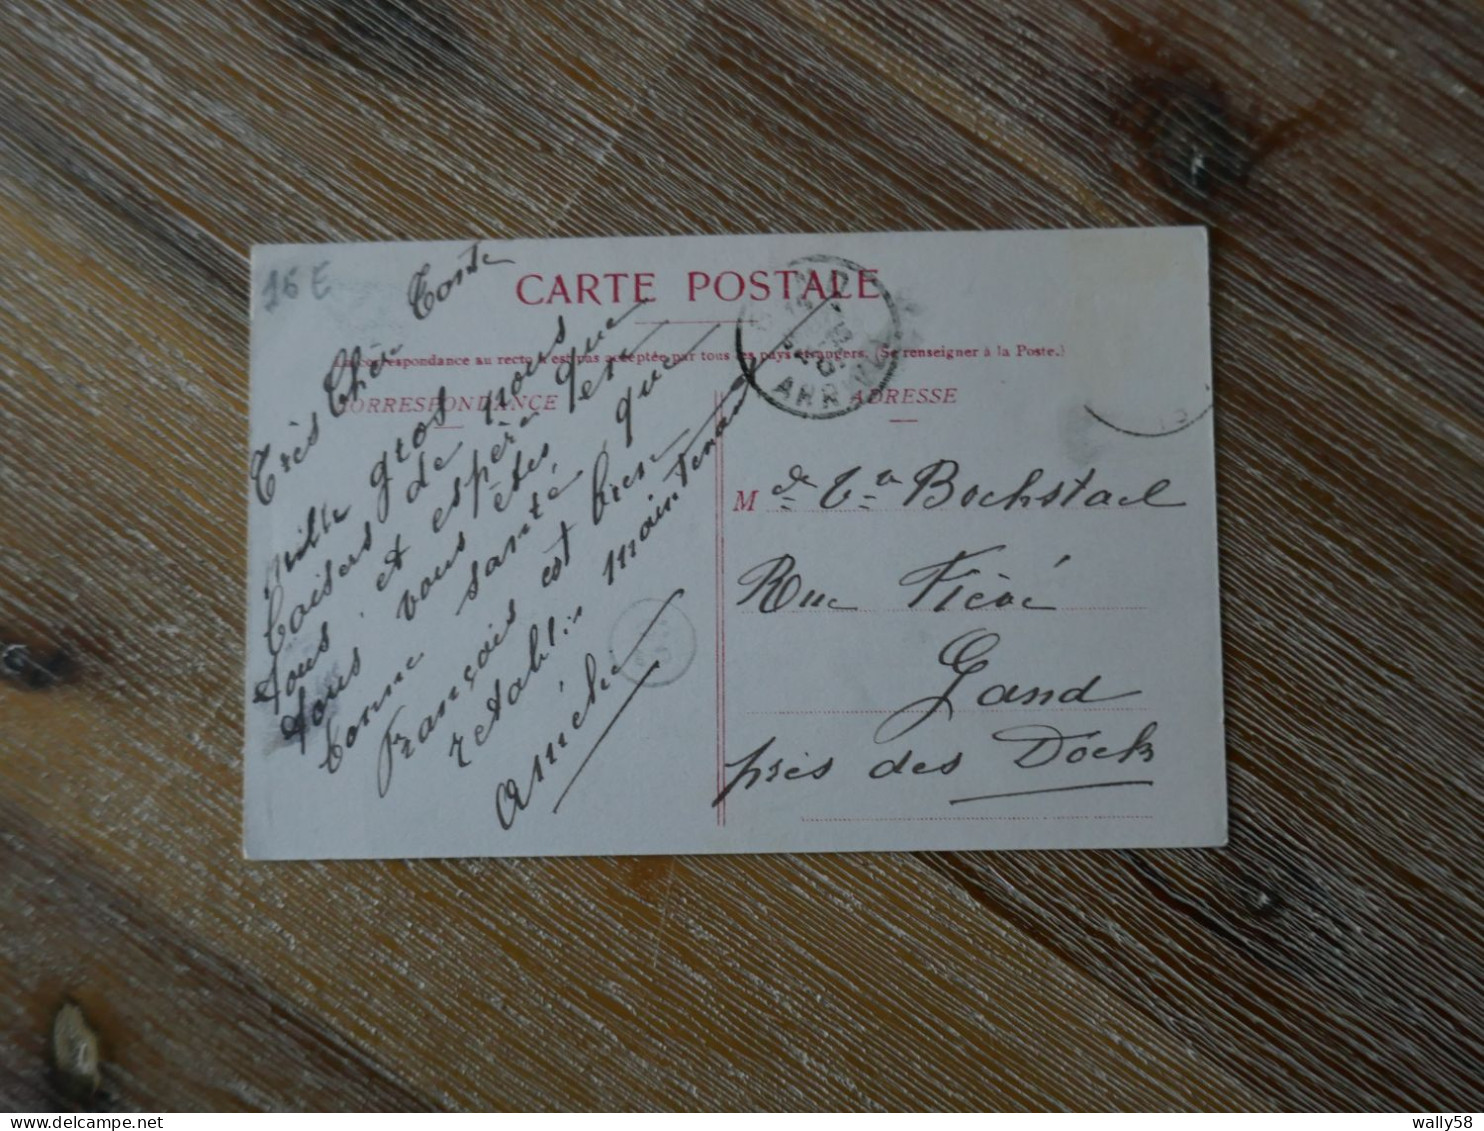 16 E
CARTE POSTALE
La correspondance au recto n'est pas acceptée par tous les pays étrangers. (Se renseigner à la Poste.)
CORRESPONDANCE
ADRESSE
Très Chère Tante
Mille gros
Baisers de nous
tous et espère que
vous êtes en
bonne santé que
François est bien
rétablis maintenant
M de Vve Bockstael
Rue Fiévé
Gand
près des Dock
ARRIVÉE
wally58